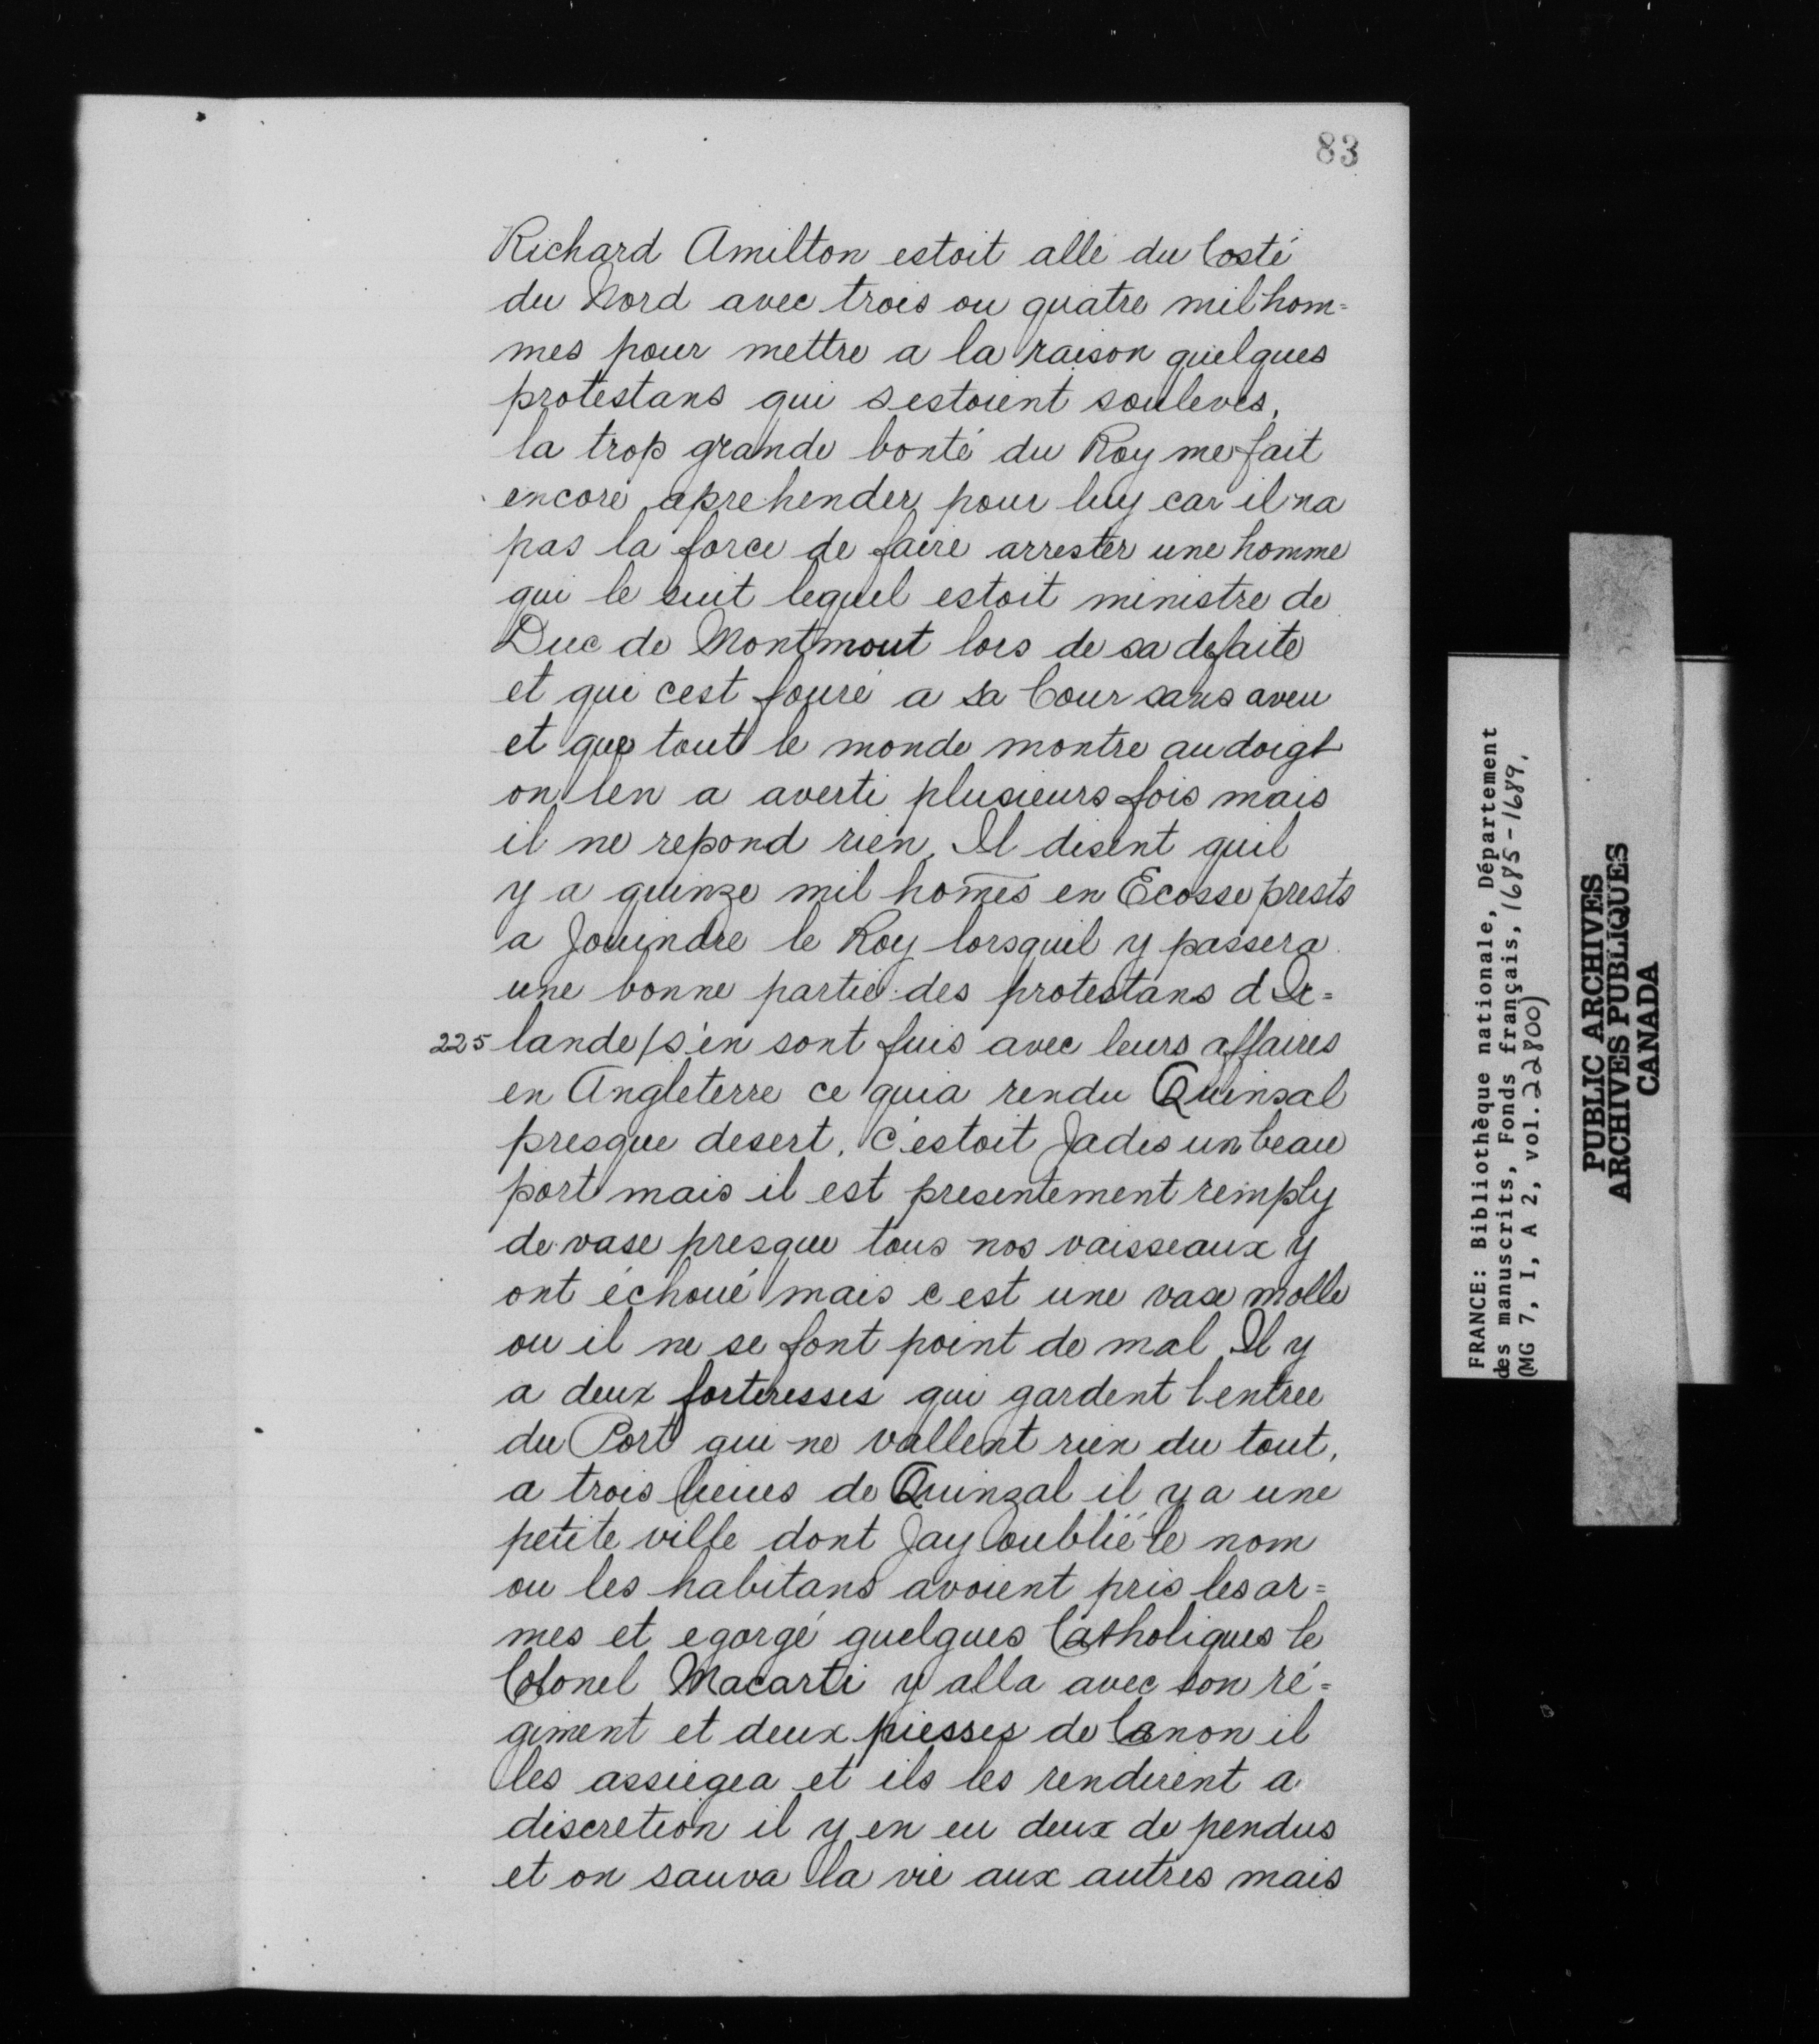 83
Richard Amilton estoit allé du Costé
du Nord avec trois ou quatre mil hom=
mes pour mettre a la raison quelques
protestans qui sestoient soulevés,
la trop grande bonté du Roy me fait
encore aprehender pour luy car il na
pas la force de faire arrester une homme
qui le suit lequel estoit ministre de
Duc de Montmout lors de sa defaite
et qui cest fouré a sa Cour sans aveu
et que tout le monde montre au doigt
on len a averti plusieurs fois mais
il ne repond rien. Il disent quil
y a quinze mil homes en Ecosse prests
a Jouindre le Roy lorsquil y passera
une bonne partie des protestans d Ir=
225 lande/s'en sont fuis avec leurs affaires
en Angleterre ce quia rendu Quinsal
presque desert, c'estoit Jadis un beau
port mais il est presentement remply
de vase presque tous nos vaisseaux y
ont échoué mais c est une vase molle
ou il ne se font point de mal Il y
a deux forteresses qui gardent lentree
du Port qui ne vallent rien du tout,
a trois lieues de Quinzal il y a une
petite ville dont Jay oublié le nom
ou les habitans avoient pris les ar=
mes et egorgé quelques Catholiques le
Colonel Macarti y alla avec son ré=
giment et deux piesses de Canon il
les assiegea et ils les rendirent a
discretion il y en eu deux de pendus
et on sauva la vie aux autres mais
FRANCE: Bibliothèque nationale, Département
des manuscrits, Fonds français, 1685-1689,
(MG 7, I, A 2, vol. 22800)
PUBLIC ARCHIVES
ARCHIVES PUBLIQUES
CANADA